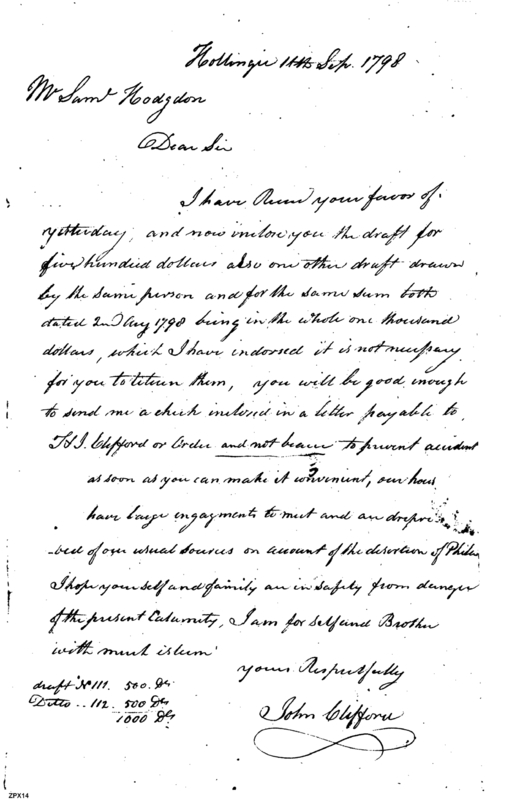 11th Sep. 1798
Mr Saml Hodgdon
Dear Sir
I have Recd your favor of
yesterday, and now inclose you the draft for
five hundred dollars also one other draft drawn
by the same person and for the same sum both
dated 2nd Aug 1798 being in the whole one thousand
dollars, which I have indorsed it is not necessary
for you to return them, you will be good enough
to send me a check inclosed in a letter payable to
T & J. Clifford or Order and not bearer to prevent accident
as soon as you can make it convenient, our house
have large engagments to meet and are depri
-ved of our usual sources on account of the desertion of Philad
I hope yourself and family are in safety from danger
of the present Calamity, I am for self and Brother
with much esteem
yours Respectfully
draft No 111. 500. Ds
Ditto .. 112. 500 Ds
1000 Ds
John Clifford
ZPX14